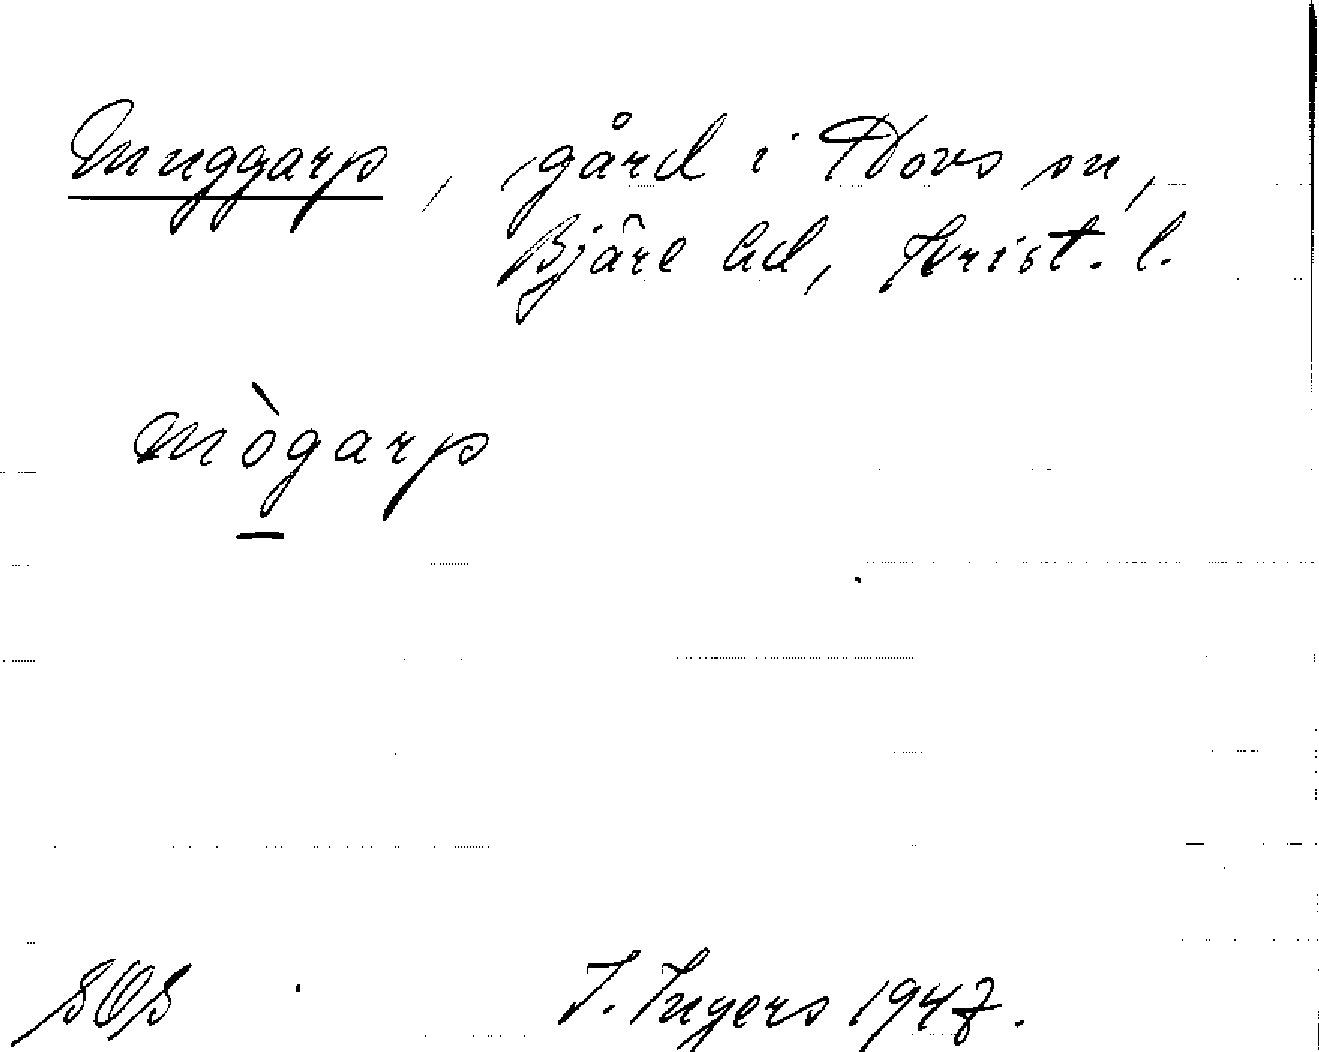 Muggarp, gård i Hovs sn,
Bjäre hd, Krist. l.
mògarp
SOS
I. Ingers 1947.